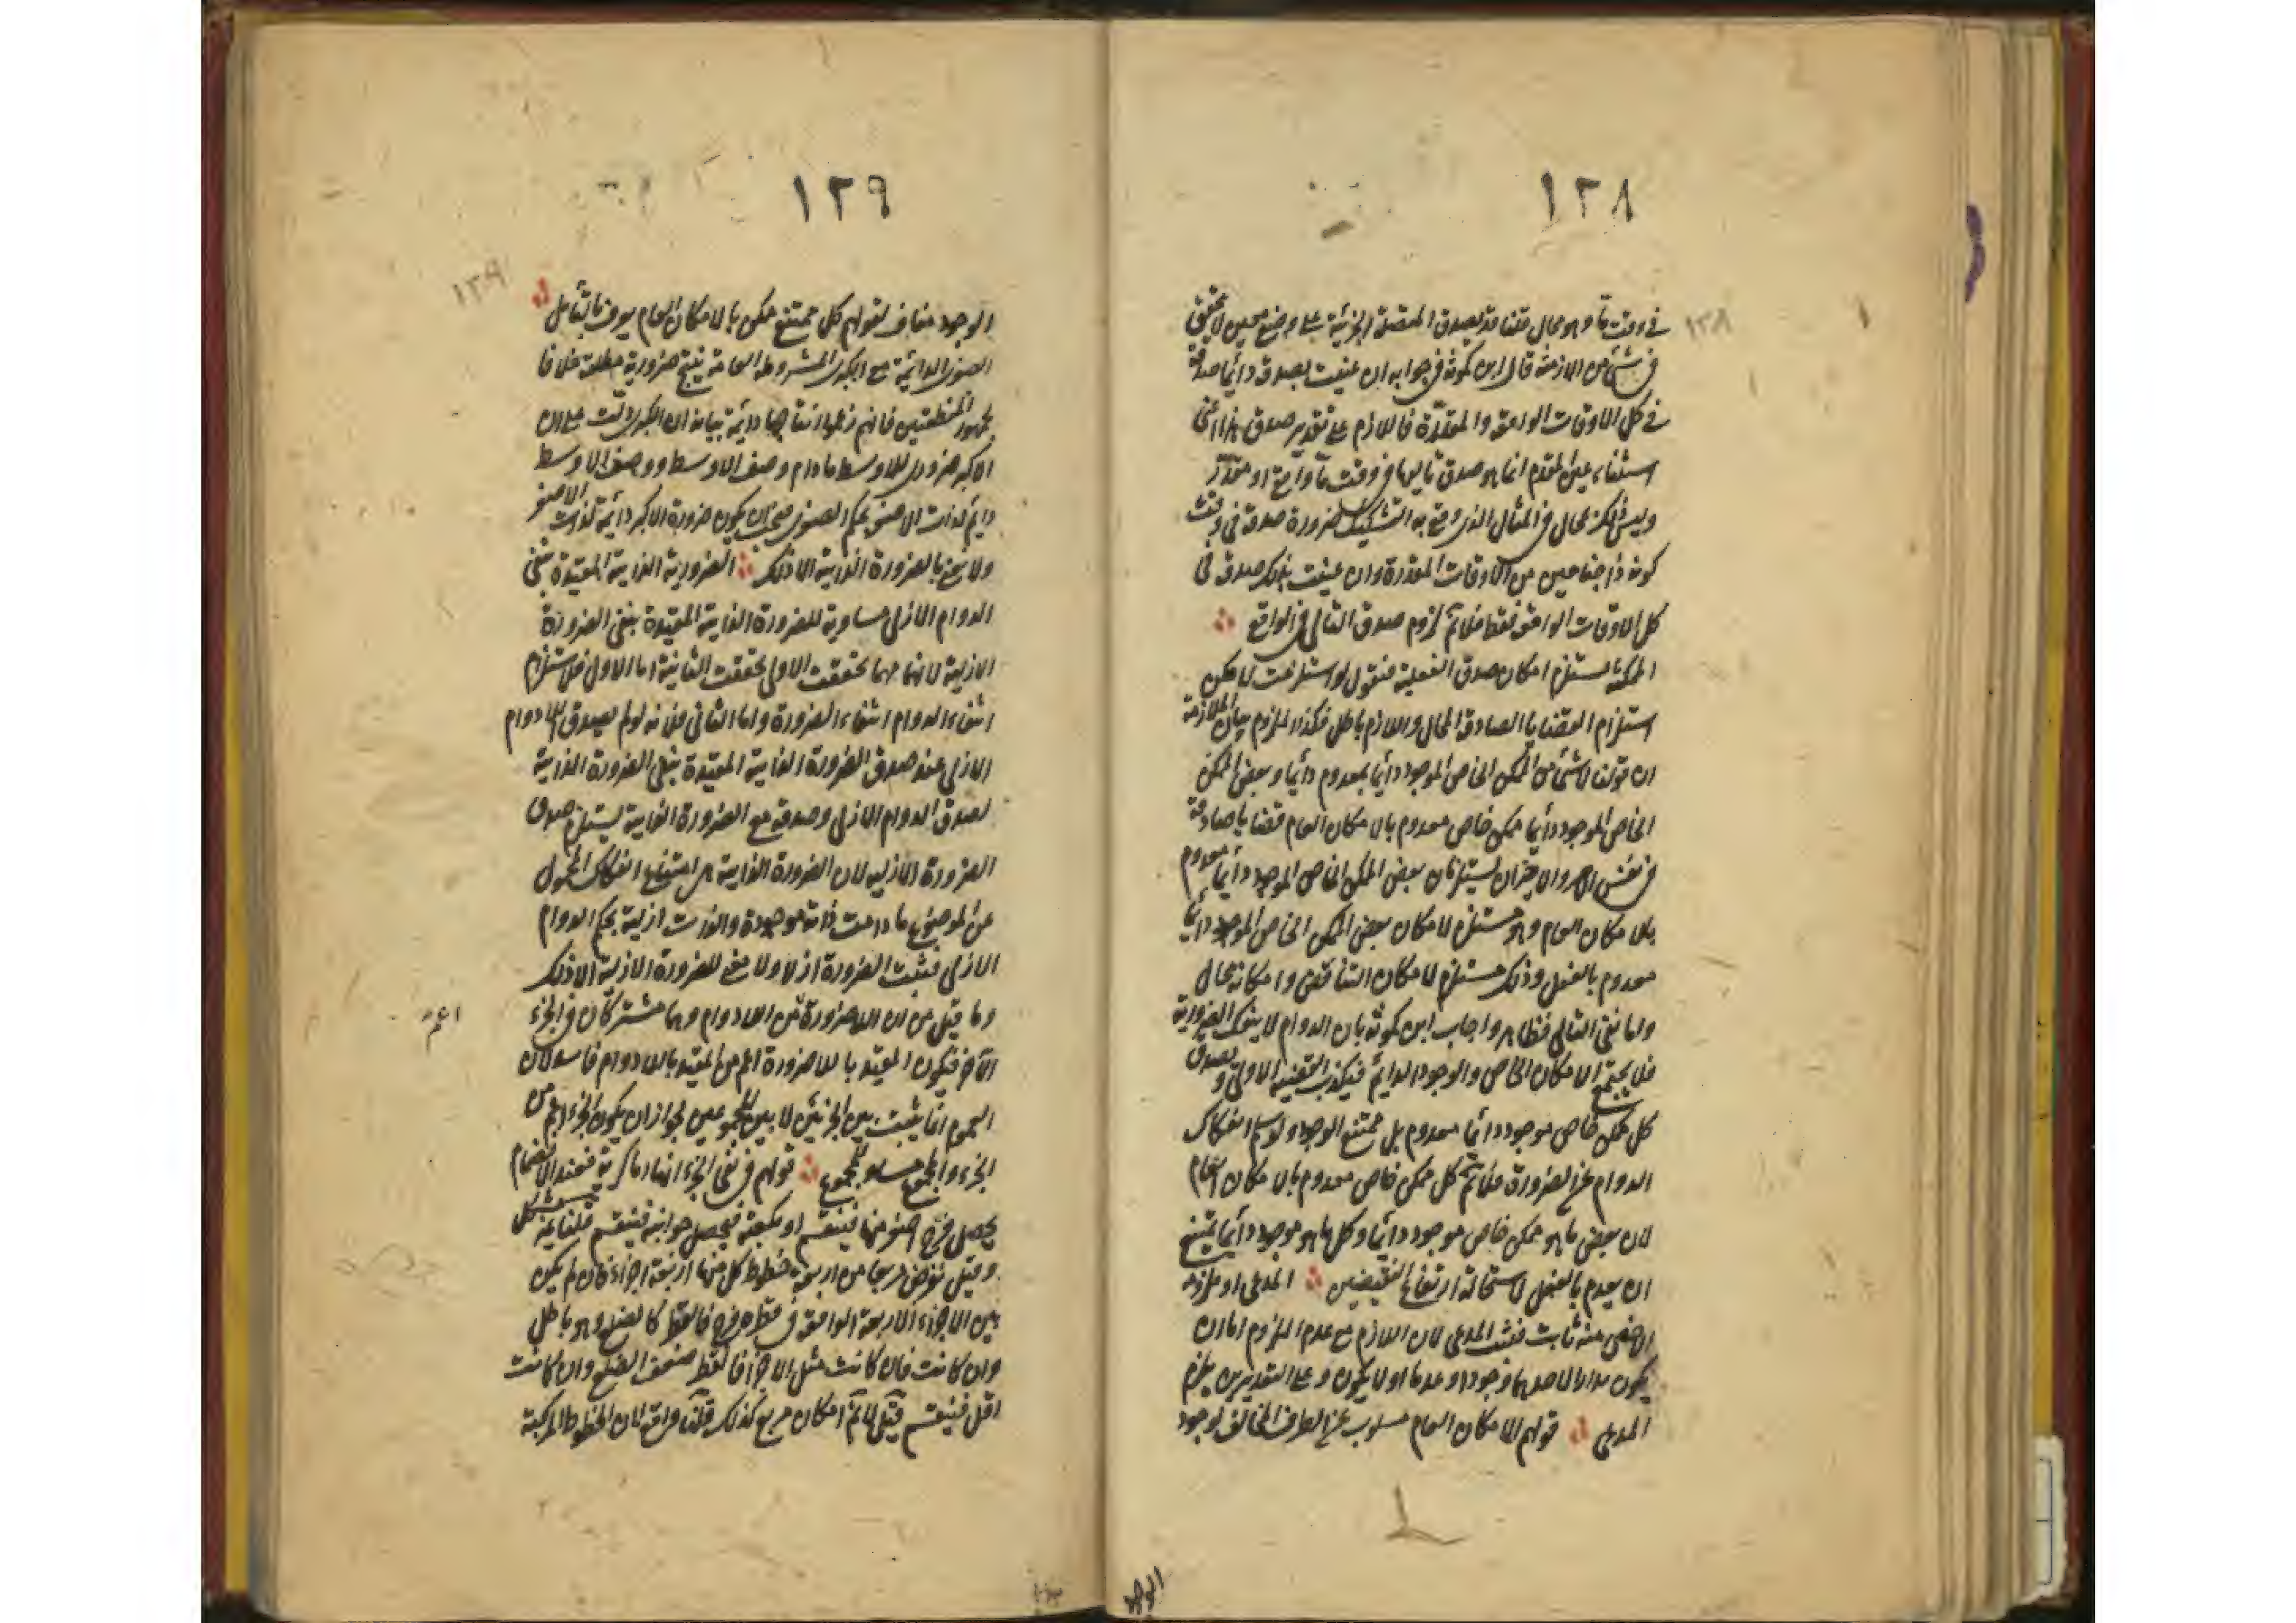 ١٢٨
في وقت ما وهو محال قلنا قد يصدق المتصلة الجزئية على وضع معين لا يتحقق
في شئ من الازمنة قال ابن كمونة في جوابه ان عنيت بصدق دائما صدقه
في كل الاوقات الواقعة والمقدرة فاللازم على تقدير صدق
استثناء عين المقدم انما هو صدق تاليها في وقت ما واقع او مقدر
وليس ذلك بمحال في المثال الذي وقع به التشكيك لضرورة صدقه في وقت
كونه ذا جناحين من الاوقات المقدرة وان عنيت بذلك صدقه في
كل الاوقات الواقعة فقط فلا نم لزوم صدق التالي في الواقع ؞
الممكنة تستلزم امكان صدق الفعلية فنقول لو استلزمت لامكن
استلزام القضايا الصادقة المحال واللازم باطل فكذا الملزوم بيان الملازمة
ان قولنا لا شئ من الممكن الخاص الموجود دائما بمعدوم دائما وبعض الممكن
الخاص الموجود دائما ممكن خاص معدوم بالامكان العام قضايا صادقة
في نفس الامر والاخيران يستلزمان بعض الممكن الخاص الموجود دائما معدوم
بالامكان العام وهو مستلزم لامكان بعض الممكن الخاص الموجود دائما
معدوم بالفعل وذلك مستلزم لامكان التناقض وامكانه محال
واما نفي التالي فظاهر واجاب ابن كمونة بان الدوام لا ينفك الضرورية
فلا يجتمع الامكان الخاص والوجود الدائم فيكذب القضية الاولى ويصدق
كل ممكن خاص موجود دائما معدوم بل ممتنع الوجود ولو سلم انفكاك
الدوام عن الضرورة فلا نم كل ممكن خاص معدوم بالامكان العام
لان بعض ما هو ممكن خاص موجود دائما وكل ما هو موجود دائما يمتنع
ان يعدم بالفعل لاستحالة ارتفاع النقيضين ؞ المدعى او ملزومه
الاخص منه ثابت فثبت المدعى لان اللازم مع عدم الملزوم اما ان
يكون مدارا لاحدهما وجودا وعدما او لا يكون وعلى التقديرين يلزم
المدعى ؞ قولهم الامكان العام مسلوب عن الطرف المخالف لوجود
الوجود
١٢٩
الوجود مناف لقولهم كل ممتنع ممكن بالامكان العام يعرف بالتأمل ؞
الصغرى الدائمة مع الكبرى المشروطة العامة ينتج ضرورية مطلقة خلافا
لجمهور المنطقيين فانهم زعموا انتاجها دائمة بيانه ان الكبرى دلت على ان
الاكبر ضروري للاوسط ما دام وصف الاوسط ووصف الاوسط
دائم لذات الاصغر بحكم الصغرى فيجب ان يكون ضرورة الاكبر دائمة لذات الاصغر
ولا نعني بالضرورة الذاتية الا ذلك ؞ الضرورية الذاتية المقيدة بنفي
الدوام الازلي مساوية للضرورة الذاتية المقيدة بنفي الضرورة
الازلية لانهما مهما تحققت الاولى تحققت الثانية اما الاول فلاستلزام
انتفاء الدوام انتفاء الضرورة واما الثاني فلانه لو لم يصدق اللادوام
الازلي عند صدق الضرورة الذاتية المقيدة بنفي الضرورة الذاتية
لصدق الدوام الازلي وصدقه مع الضرورة الذاتية يستلزم صدق
الضرورة الازلية لان الضرورة الذاتية هي امتناع انفكاك المحمول
عن الموضوع ما دامت ذاته موجودة والذات ازلية بحكم الدوام
الازلي فيثبت الضرورة ازلا ولا معنى للضرورة الازلية الا ذلك
وما قيل من ان اللاضرورة من اللادوام وهما مشتركان في الجزء
اعم
الآخر فيكون المقيد باللاضرورة اعم من المقيد باللادوام فاسد لان
العموم انما يثبت بين الجزئين لا بين المجموعين لجواز ان يكون الجزء اعم من
الجزء والمجموع مساو للمجموع ؞ قولهم في نفي الجزء انها اما كرية فعند الانضمام
يحصل فرج اصغر منها فينقسم او مكعبة فيحصل جوانب فينقسم قلنا
وقيل نفرض مربعا من اربعة خطوط كل منها اربعة اجزاء فان لم يكن
بين الاجزاء الاربعة الواقعة في قطره فرج فالقطر كالضلع وهو باطل
وان كانت فان كانت مثل الاجزاء فالقطر ضعف الضلع وان كانت
اقل فينقسم قيل لا نم امكان مربع كذلك قلنا واقع لان الخطوط المركبة